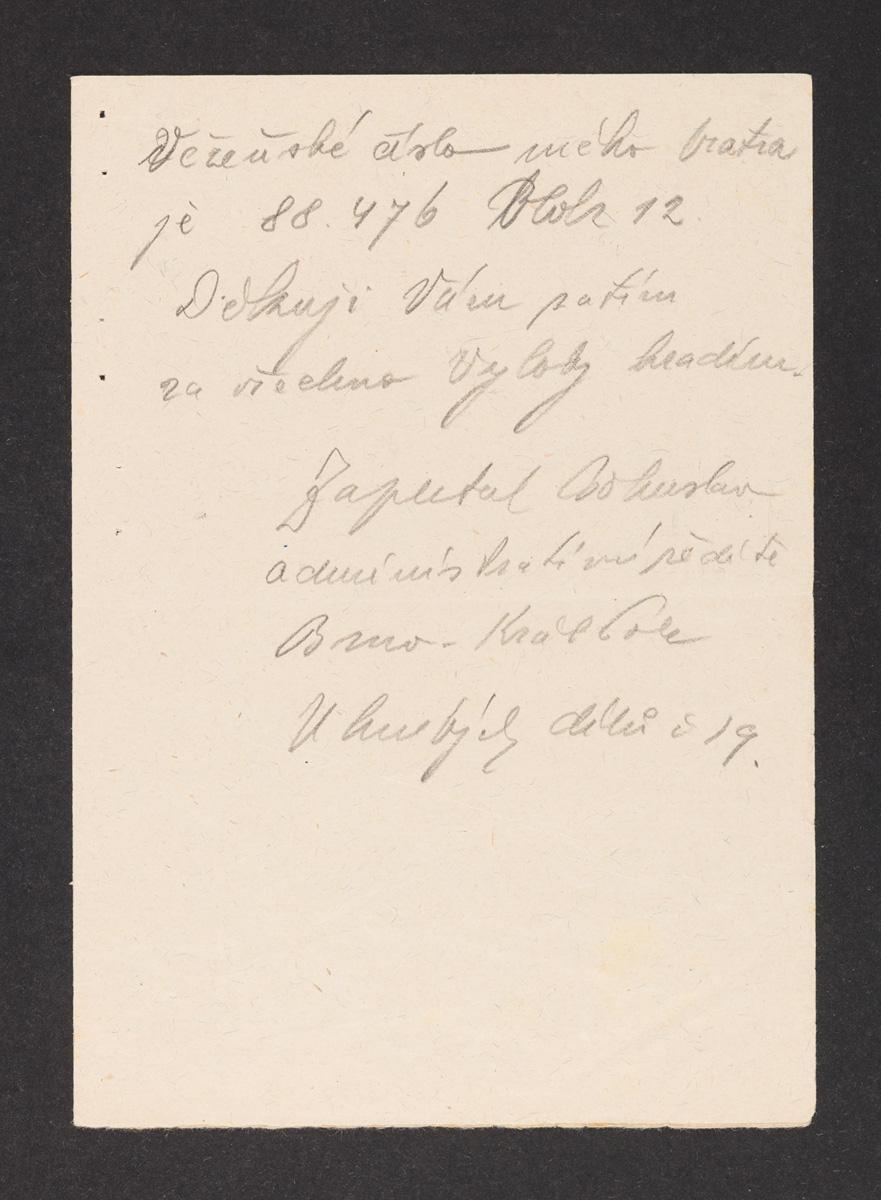 Vězeňské číslo mého bratra
je 88.476 Block 12
Děkuji Vám zatím
za všechno Vylohy hradím.
Zapletal Bohuslav
administrativní ředitel
Brno - Král Pole
U hnebých dílů č 19.